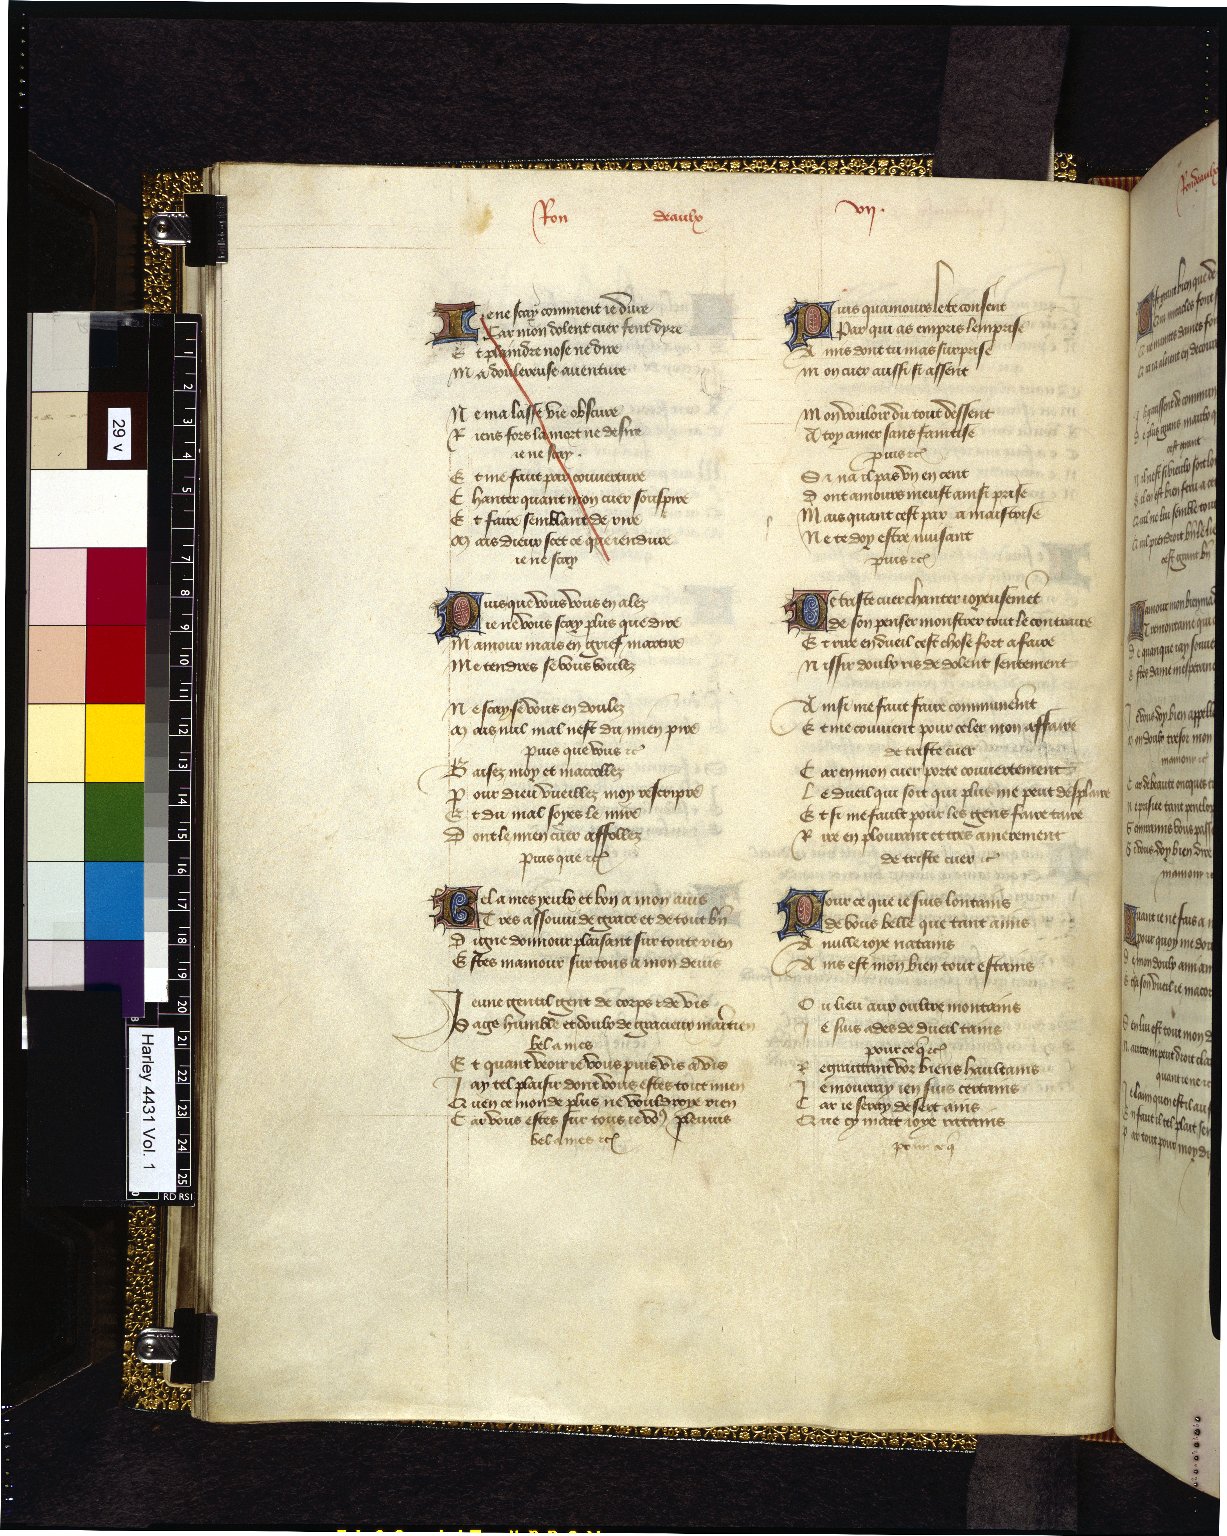 Ron deaulx vij.
Ie ne scay comment ie dure
Car mon dolent cuer fent dyre
Et plaindre nose ne dire
Ma doulereuse aventure
Ne ma lasse vie obscure
Riens fors la mort ne desire
ie ne scay.
Et me faut par couverture
Chanter quant mon cuer souspire
Et faire semblant de rire
Mais dieux scet ce que iendure
ie ne scay
Puis que vous vous en alez
ie ne vous scay plus que dire
Mamour mais en grief martire
Me tendres se vous voulez
Ne scay se vous en doulez
Mais nul mal nest du mien pire
puis que vous &c
Baisez moy et maccollez
Pour dieu vueillez moy rescripre
Et du mal soyes le mire
Dont le mien cuer affollez
puis que &c
Bel a mes yeulx et bon a mon avis
Tres assouvi de grace et de tout bn
Digne donnour plaisant sur toute rien
Estes mamour sur tous a mon devis
Jeune gentil gent de corps & de vis
Sage humble et doulx de gracieux maintien
bel a mes
Et quant veoir ie vous puis vis a vis
Jay tel plaisir dont vous estes tout mien
Quen ce monde plus ne vouldroye rien
Car vous estes sur tous ie vo9 plevuis
bel a mes &c
Puis quamours le te consent
Par qui as empris lemprise
Amis dont tu mas surprise
Mon cuer aussi si assent
Mon vouloir du tout dessent
A toy amer sans faintise
puis &c
Si na il pas un en cent
Dont amours meust ainsi prise
Mais quant cest par sa maistrise
Ne te doy estre nuisant
puis &c
De triste cuer chanter ioyeusemēt
de son penser monstrer tout le contraire
Et rire en dueil cest chose fort a faire
Nissir doulx ris de dolent sentement
Ainsi me faut faire communemēt
Et me couvient pour celer mon affaire
de triste cuer
Car en mon cuer porte couvertement
Le dueil qui soit qui plus me peut desplaire
Et si me fault pour les gens faire taire
Rire en plourant et tres amerement
de triste cuer &c
Pour ce que ie suis lontains
de vous belle que tant aims
A nulle ioye natains
Ains est mon bien tout estains
Ou lieu aux oultre montains
Je suis ades de dueil tains
pour ce q &c
Regraittant voz biens haultains
Je mourray ien suis certains
Car ie seray desert ains
Que cy mait ioye ratains
pour ce q
29 v
Harley 4431 Vol. 1